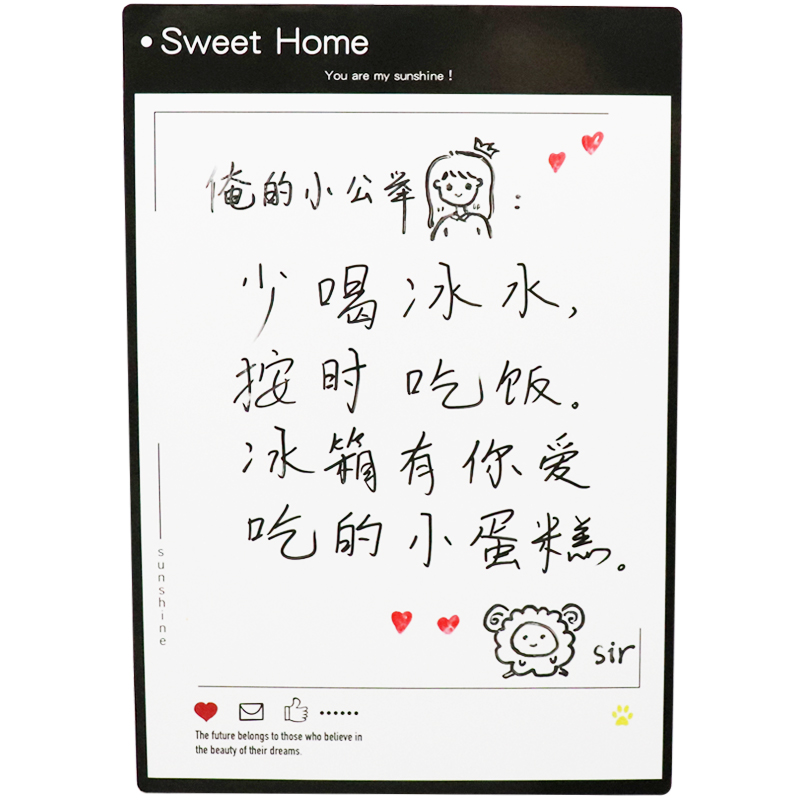 • Sweet Home
You are my sunshine !
俺的小公举:
少喝冰水,
按时吃饭。
冰箱有你爱
吃的小蛋糕。
sunshine
sir
......
The future belongs to those who believe in
the beauty of their dreams.